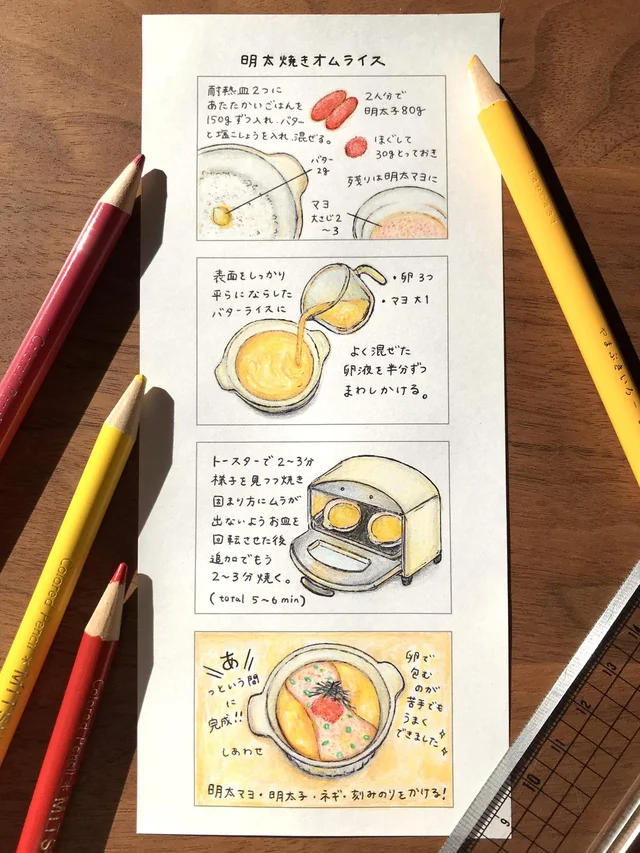 明太焼きオムライス
耐熱皿2つに
あたたかいごはんを
150gずつ入れ、バター
と塩こしょうを入れ、混ぜる。
2人分で
明太子80g
ほぐして
30gとっておき
残りは明太マヨに
バター
2g
マヨ
大さじ2
～3
表面をしっかり
平らにならした
バターライスに
・卵3つ
・マヨ大1
よく混ぜた
卵液を半分ずつ
まわしかける。
トースターで2～3分
様子を見つつ焼き
固まり方にムラが
出ないようお皿を
回転させた後
追加でもう
2～3分焼く。
(total 5～6min)
あ
っという間
に
完成!!
しあわせ
卵で
包む
のが
苦手でも
うまく
できました
明太マヨ・明太子・ネギ・刻みのりをかける!
やまぶきいろ
Colored Pencil
Colored Pencil
9
10
11
12
13
14